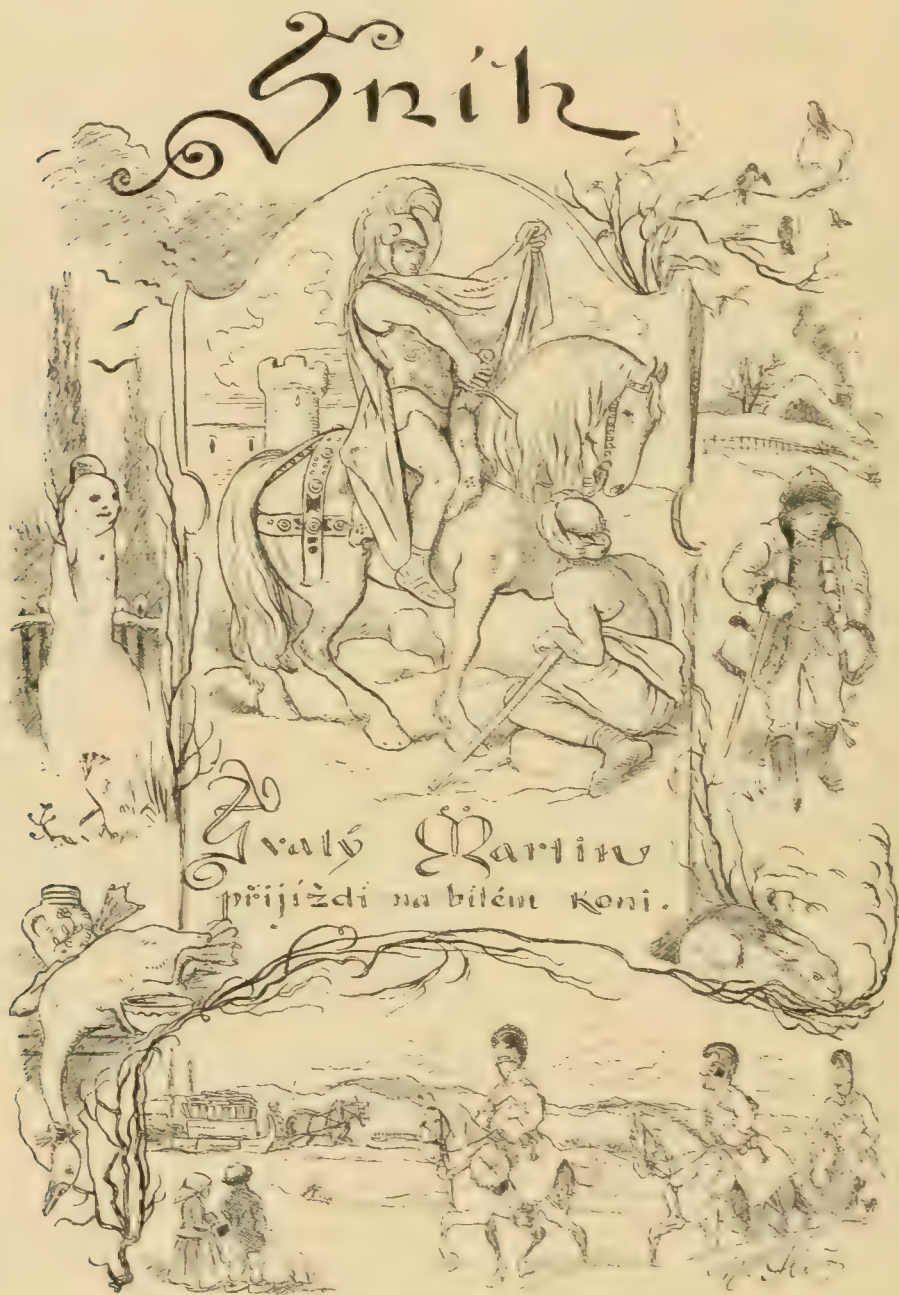 Sníh
Svatý Martin
přijíždí na bílém koni.